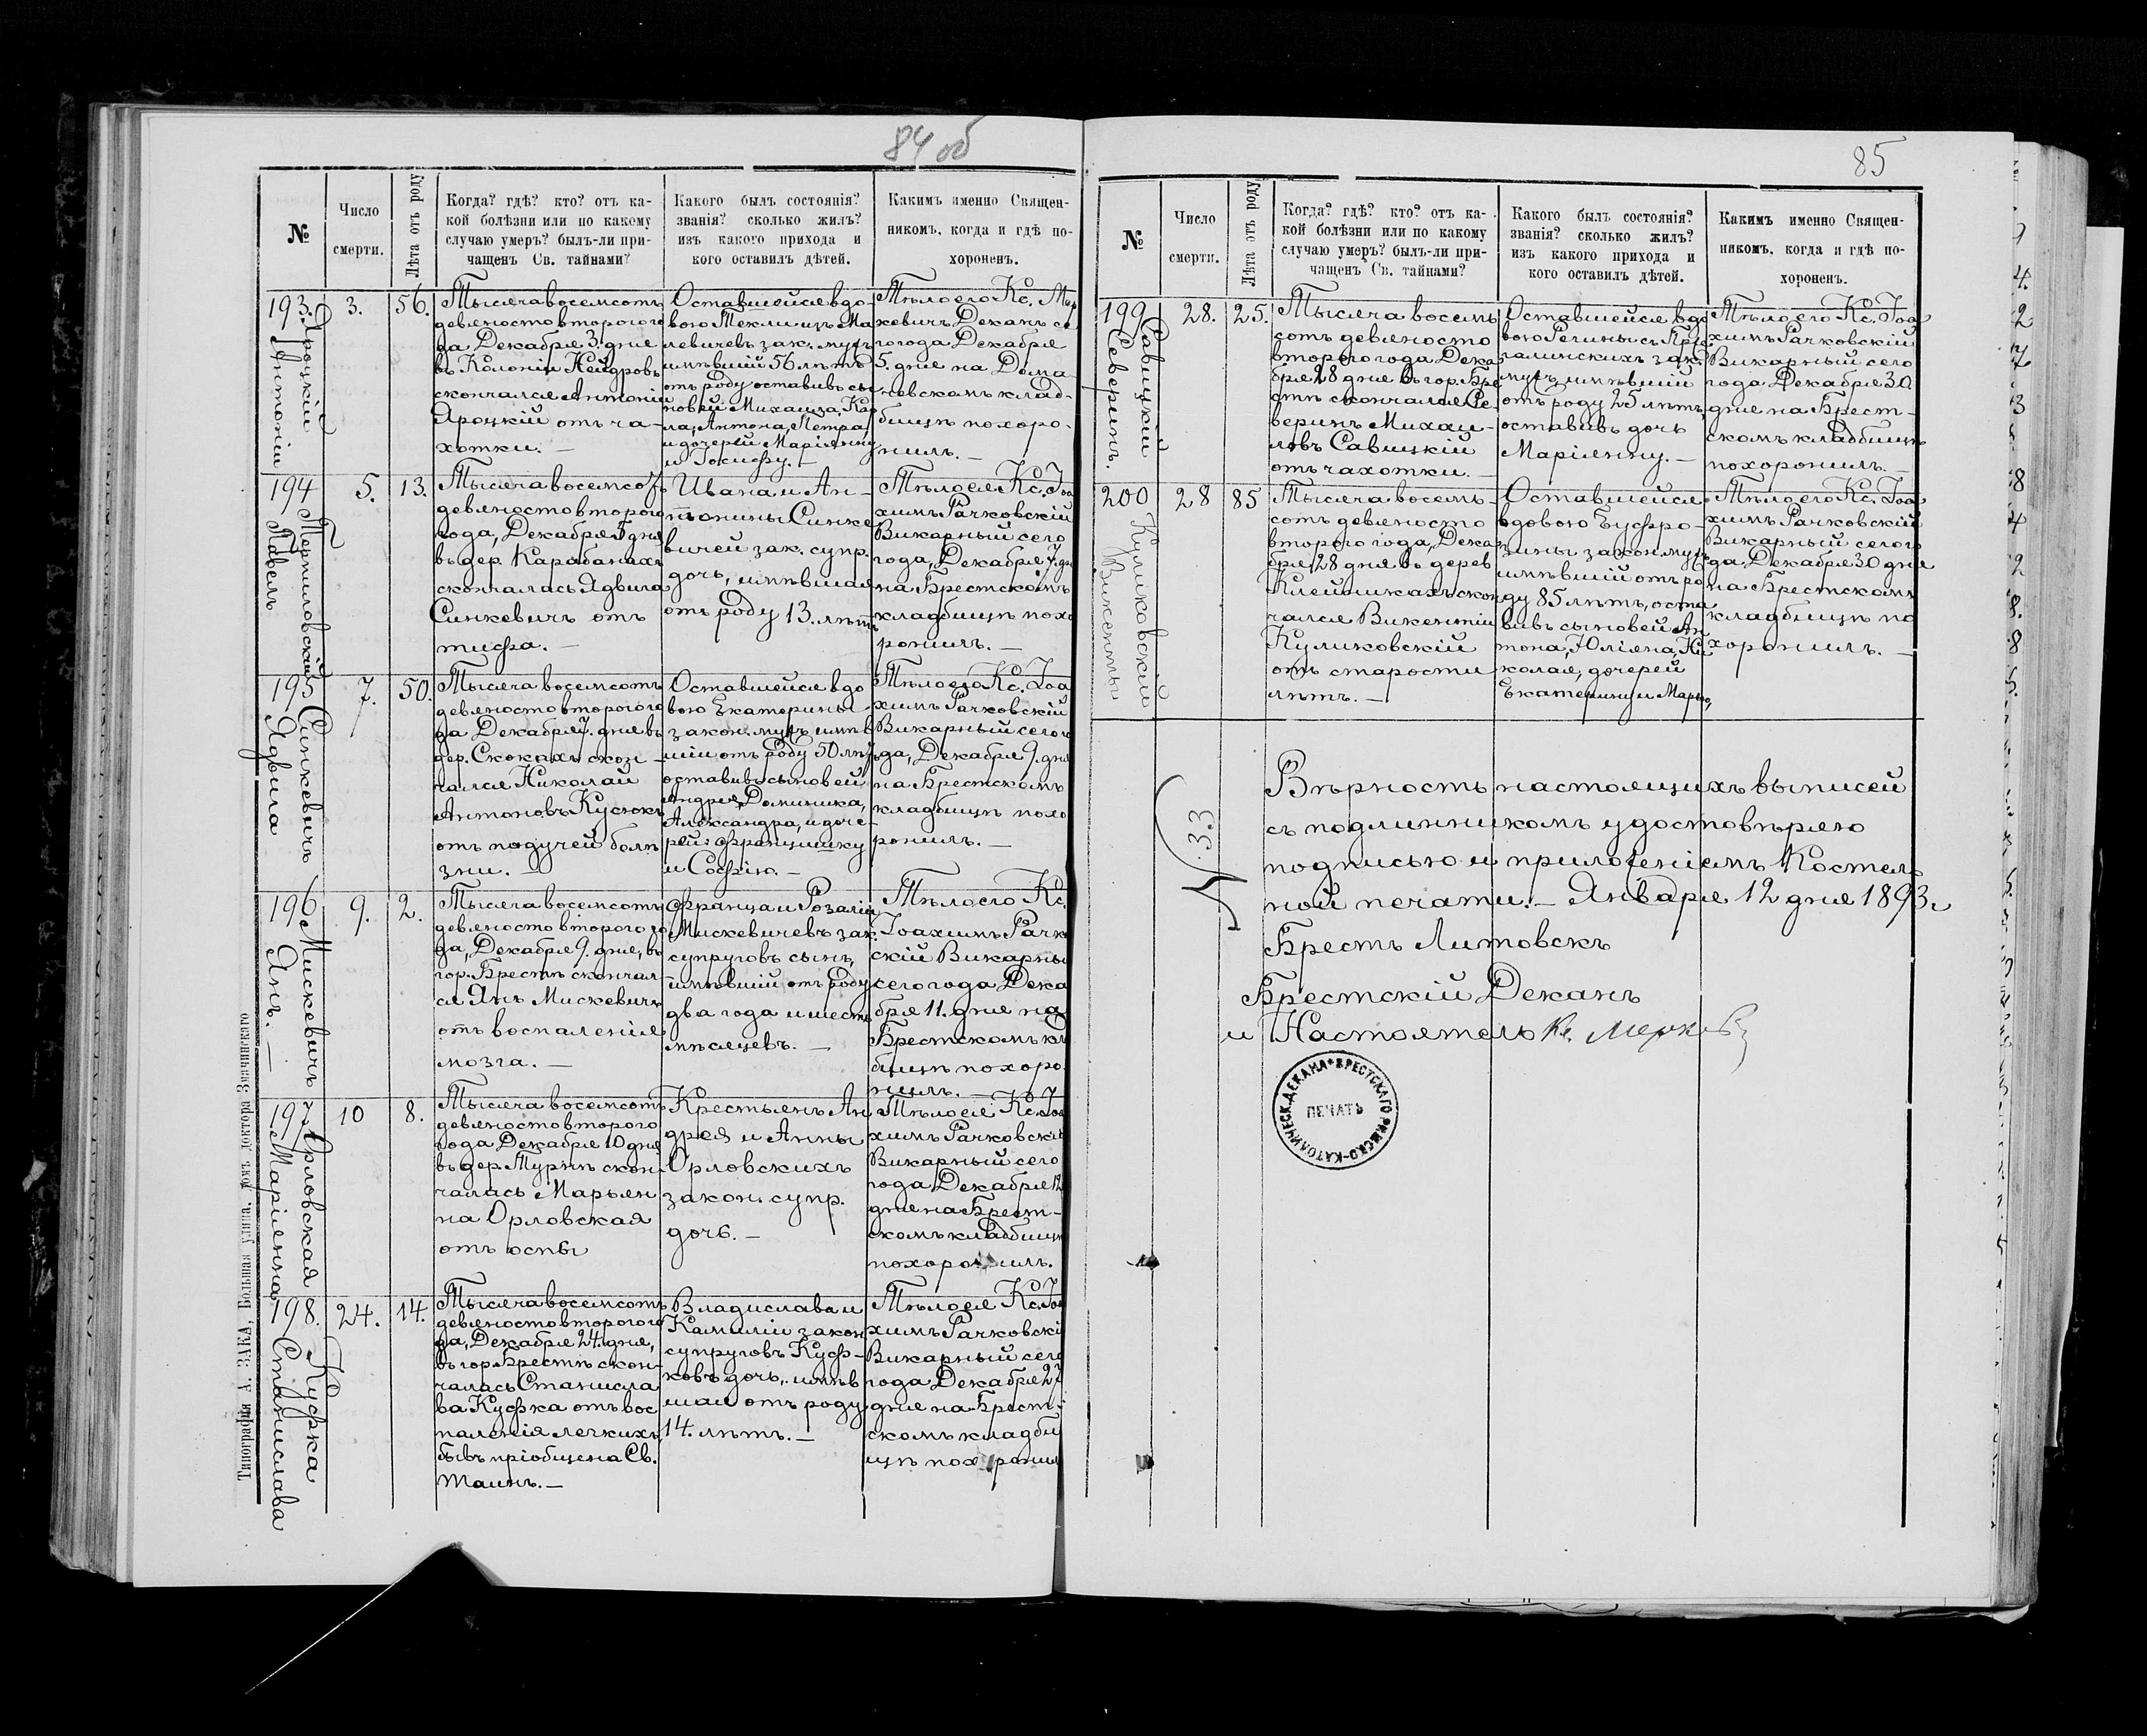 84 об
№
Число
смерти.
Лѣта отъ роду
Когда? гдѣ? кто? отъ ка-
кой болѣзни или по какому
случаю умеръ? былъ-ли при-
чащенъ Св. тайнами?
Какого былъ состоянія?
званія? сколько жилъ?
изъ какого прихода и
кого оставилъ дѣтей.
Какимъ именно Священ-
никомъ, когда и гдѣ по-
хороненъ.
193.
Яроцкій
Антоній
3.
56.
Тысяча восемсотъ
девяносто второго го
да Декабря 3. дня
въ Колоніи Нейдровъ
скончался Антоній
Яроцкій отъ ча-
хотки. —
Оставшейся вдо
вою Текли изъ Ма
левичевъ зак. мужъ
имѣвшій 56 лѣтъ
отъ роду оставивъ сы
новей Михаила, Кар
ла, Антона, Петра
и дочерей Маріянну
и Іосифу. —
Тѣло его Кс. Мер
кевичъ Деканъ се
го года Декабря
5. дня на Дома
невскомъ клад-
бищѣ похоро-
нилъ. —
194
Павелъ
5.
13.
Тысяча восемсотъ
девяносто второго
года, Декабря 5 дня
въ дер. Карабанахъ
скончалась Ядвига
Синкевичъ отъ
тифа. —
Ивана и Ан-
тонины Синке
вичей зак. супр.
дочь, имѣвшая
отъ роду 13. лѣтъ
Тѣло ея Кс. Іоа
химъ Рачковскій
Викарный сего
года, Декабря 7. дня
на Брестскомъ
кладбищѣ похо
ронилъ. —
195
Синкевичъ
Ядвига
7.
50.
Тысяча восемсотъ
девяносто второго го
да Декабря 7. дня въ
дер. Скокахъ скон-
чался Николай
Антоновъ Кусюкъ
отъ падучей болѣ
зни. —
Оставшейся вдо
вою Екатерины
закон. мужъ имѣв
шій отъ роду 50 лѣтъ
оставивъ сыновей
Андрея, Доминика,
Александра, и доче-
рей: Францишку
и Софію. —
Тѣло его Кс. Іоа
химъ Рачковскій
Викарный сего го
да, Декабря 9. дня
на Брестскомъ
кладбищѣ похо
ронилъ. —
196
Мискевичъ
Янъ. —
9.
2.
Тысяча восемсотъ
девяносто второго го
да, Декабря 9. дня, въ
гор. Брестѣ скончал-
ся Янъ Мискевичъ
отъ воспаленія
мозга. —
Франца и Розаліи
Мискевичевъ зак.
супруговъ сынъ,
имѣвшій отъ роду
два года и шесть
мѣсяцевъ. —
Тѣло его Кс.
Іоахимъ Рачков
скій Викарный
сего года Дека
бря 11. дня на
Брестскомъ кл
бищѣ похоро
нилъ. —
197
Орловская
Маріянна
10
8.
Тысяча восемсотъ
девяносто второго
года Декабря 10 дня
въ дер. Турнѣ скон-
чалась Марьян
на Орловская
отъ оспы
Крестьянъ Ан
дрея и Анны
Орловскихъ
закон. супр.
дочь. —
Тѣло ея Кс. Іоа
химъ Рачковскій
Викарный сего
года Декабря 12
дня на Брест-
скомъ кладбищѣ
похоронилъ.
198.
Куфка
Станислава
24.
14.
Тысяча восемсотъ
девяносто второго го
да, Декабря 24. дня,
въ гор. Брестѣ скон-
чалась Станисла
ва Куфка отъ вос
паленія легкихъ,
бывъ пріобщена Св.
Таинъ. —
Владислава и
Камиліи закон
супруговъ Куф-
ковъ дочь, имѣв
шая отъ роду
14. лѣтъ. —
Тѣло ея Кс. Іоа
химъ Рачковскій
Викарный сего
года Декабря 27
дня на Брест-
скомъ кладби
щѣ похоронил
Типографія А. ЗАКА, Большая улица, домъ доктора Значинскаго
85
№
Число
смерти.
Лѣта отъ роду
Когда? гдѣ? кто? отъ ка-
кой болѣзни или по какому
случаю умеръ? былъ-ли при-
чащенъ Св. тайнами?
Какого былъ состоянія?
званія? сколько жилъ?
изъ какого прихода и
кого оставилъ дѣтей.
Какимъ именно Священ-
никомъ, когда и гдѣ по-
хороненъ.
199
Савицкій
Северинъ.
28.
25.
Тысяча восемь
сотъ девяносто
второго года Дека
бря 28 дня въ гор. Бре
стѣ скончался Се-
веринъ Михаи-
ловъ Савицкій
отъ чахотки. —
Оставшейся вдо
вою Регины съ
зак.
мужъ имѣвшій
отъ роду 25 лѣтъ,
оставивъ дочь
Маріянну. —
Тѣло его Кс. Іоа
химъ Рачковскій
Викарный сего
года Декабря 30
дня на Брест-
скомъ кладбищѣ
похоронилъ. —
200
Куликовскій
Викентій
28
85
Тысяча восемь-
сотъ девяносто
второго года, Дека
бря 28 дня въ дерев
Клейникахъ скон
чался Викентій
Куликовскій
отъ старости
лѣтъ. —
Оставшейся
вдовою Ефро-
зины закон. мужъ
имѣвшій отъ ро
ду 85 лѣтъ, оста
вивъ сыновей Ан
тона, Юліяна, Ни
колая, дочерей
Екатерину и Марью,
Тѣло его Кс. Іоа
химъ Рачковскій
Викарный сего го
да, Декабря 30 дня
на Брестскомъ
кладбищѣ по
хоронилъ. —
N. 33
Вѣрность настоящихъ выписей
съ подлинникомъ удостовѣряю
подписью и приложеніемъ Костель
ной печати. — Января 12 дня 1893 г
Брестъ Литовскъ
Брестскій Деканъ
и Настоятель Кс.
ДЕКАНА * БРЕСТСКАГО РИМСКО-КАТОЛИЧЕСК.
ПЕЧАТЬ